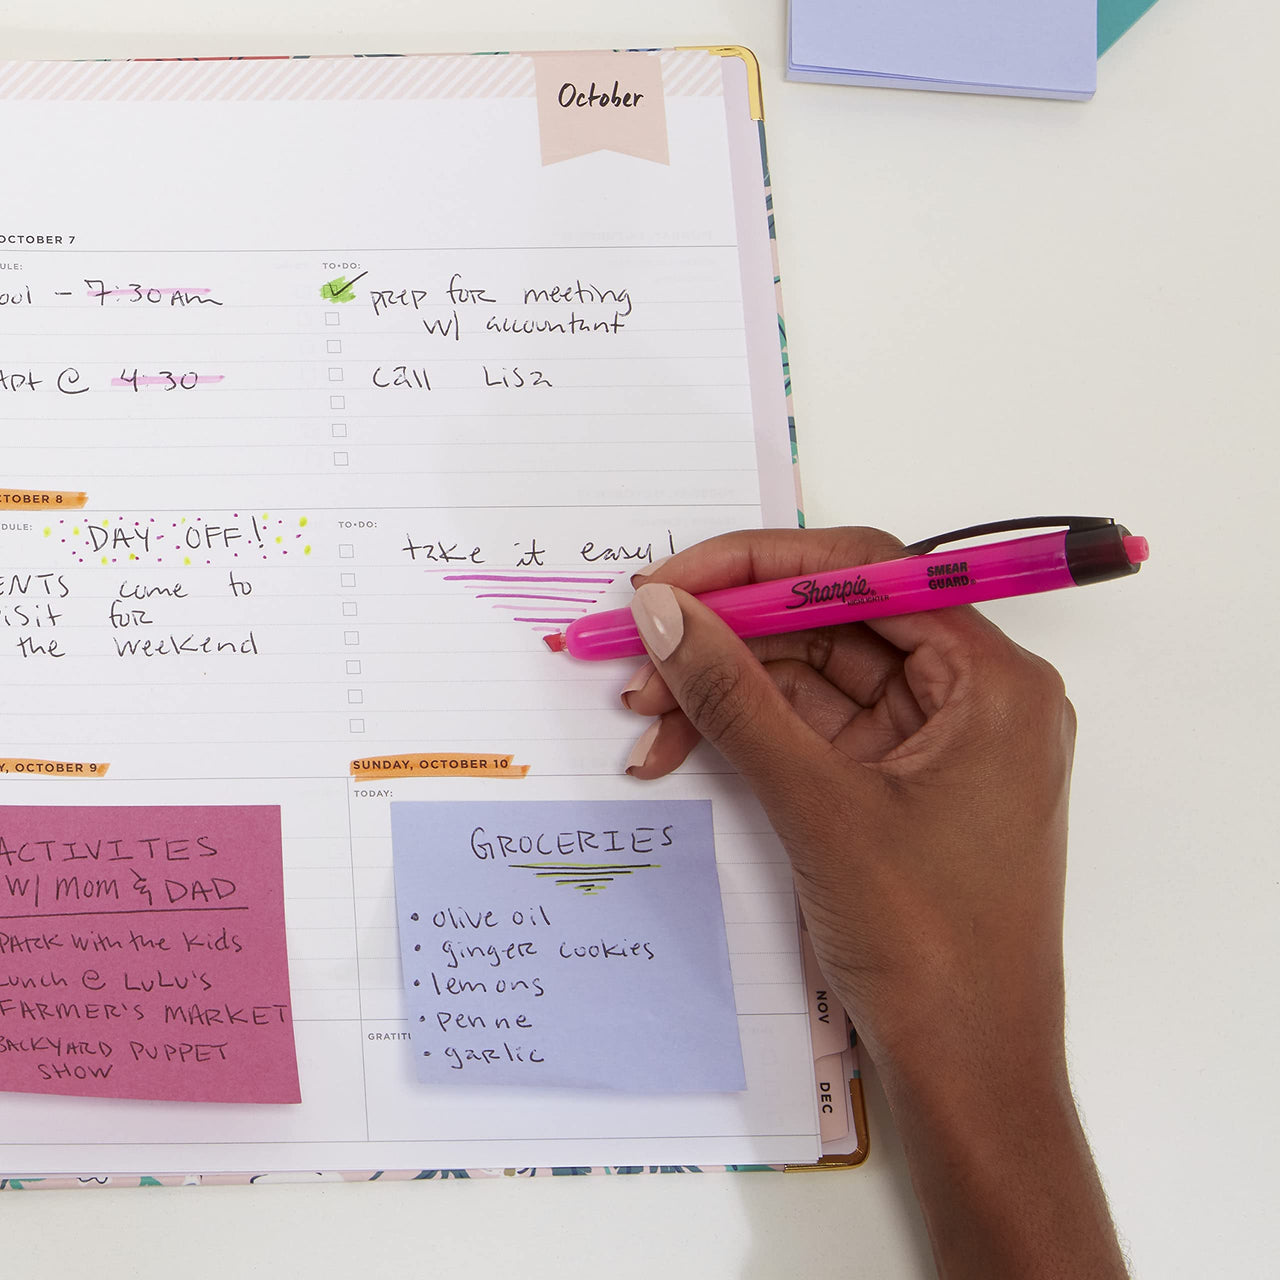 October
OCTOBER 7
TO•DO:
7:30 Am
prep for meeting
w/ accountant
@ 4:30
call Lisa
OCTOBER 8
TO•DO:
DAY OFF!
take it easy!
come to
for
the weekend
Sharpie®
HIGHLIGHTER
SMEAR
GUARD®
OCTOBER 9
SUNDAY, OCTOBER 10
TODAY:
ACTIVITES
W/ Mom & DAD
PARK with the kids
Lunch @ LuLu's
FARMER'S MARKET
BACKYARD PUPPET
SHOW
GROCERIES
• olive oil
• ginger cookies
• lemons
• penne
• garlic
NOV
DEC